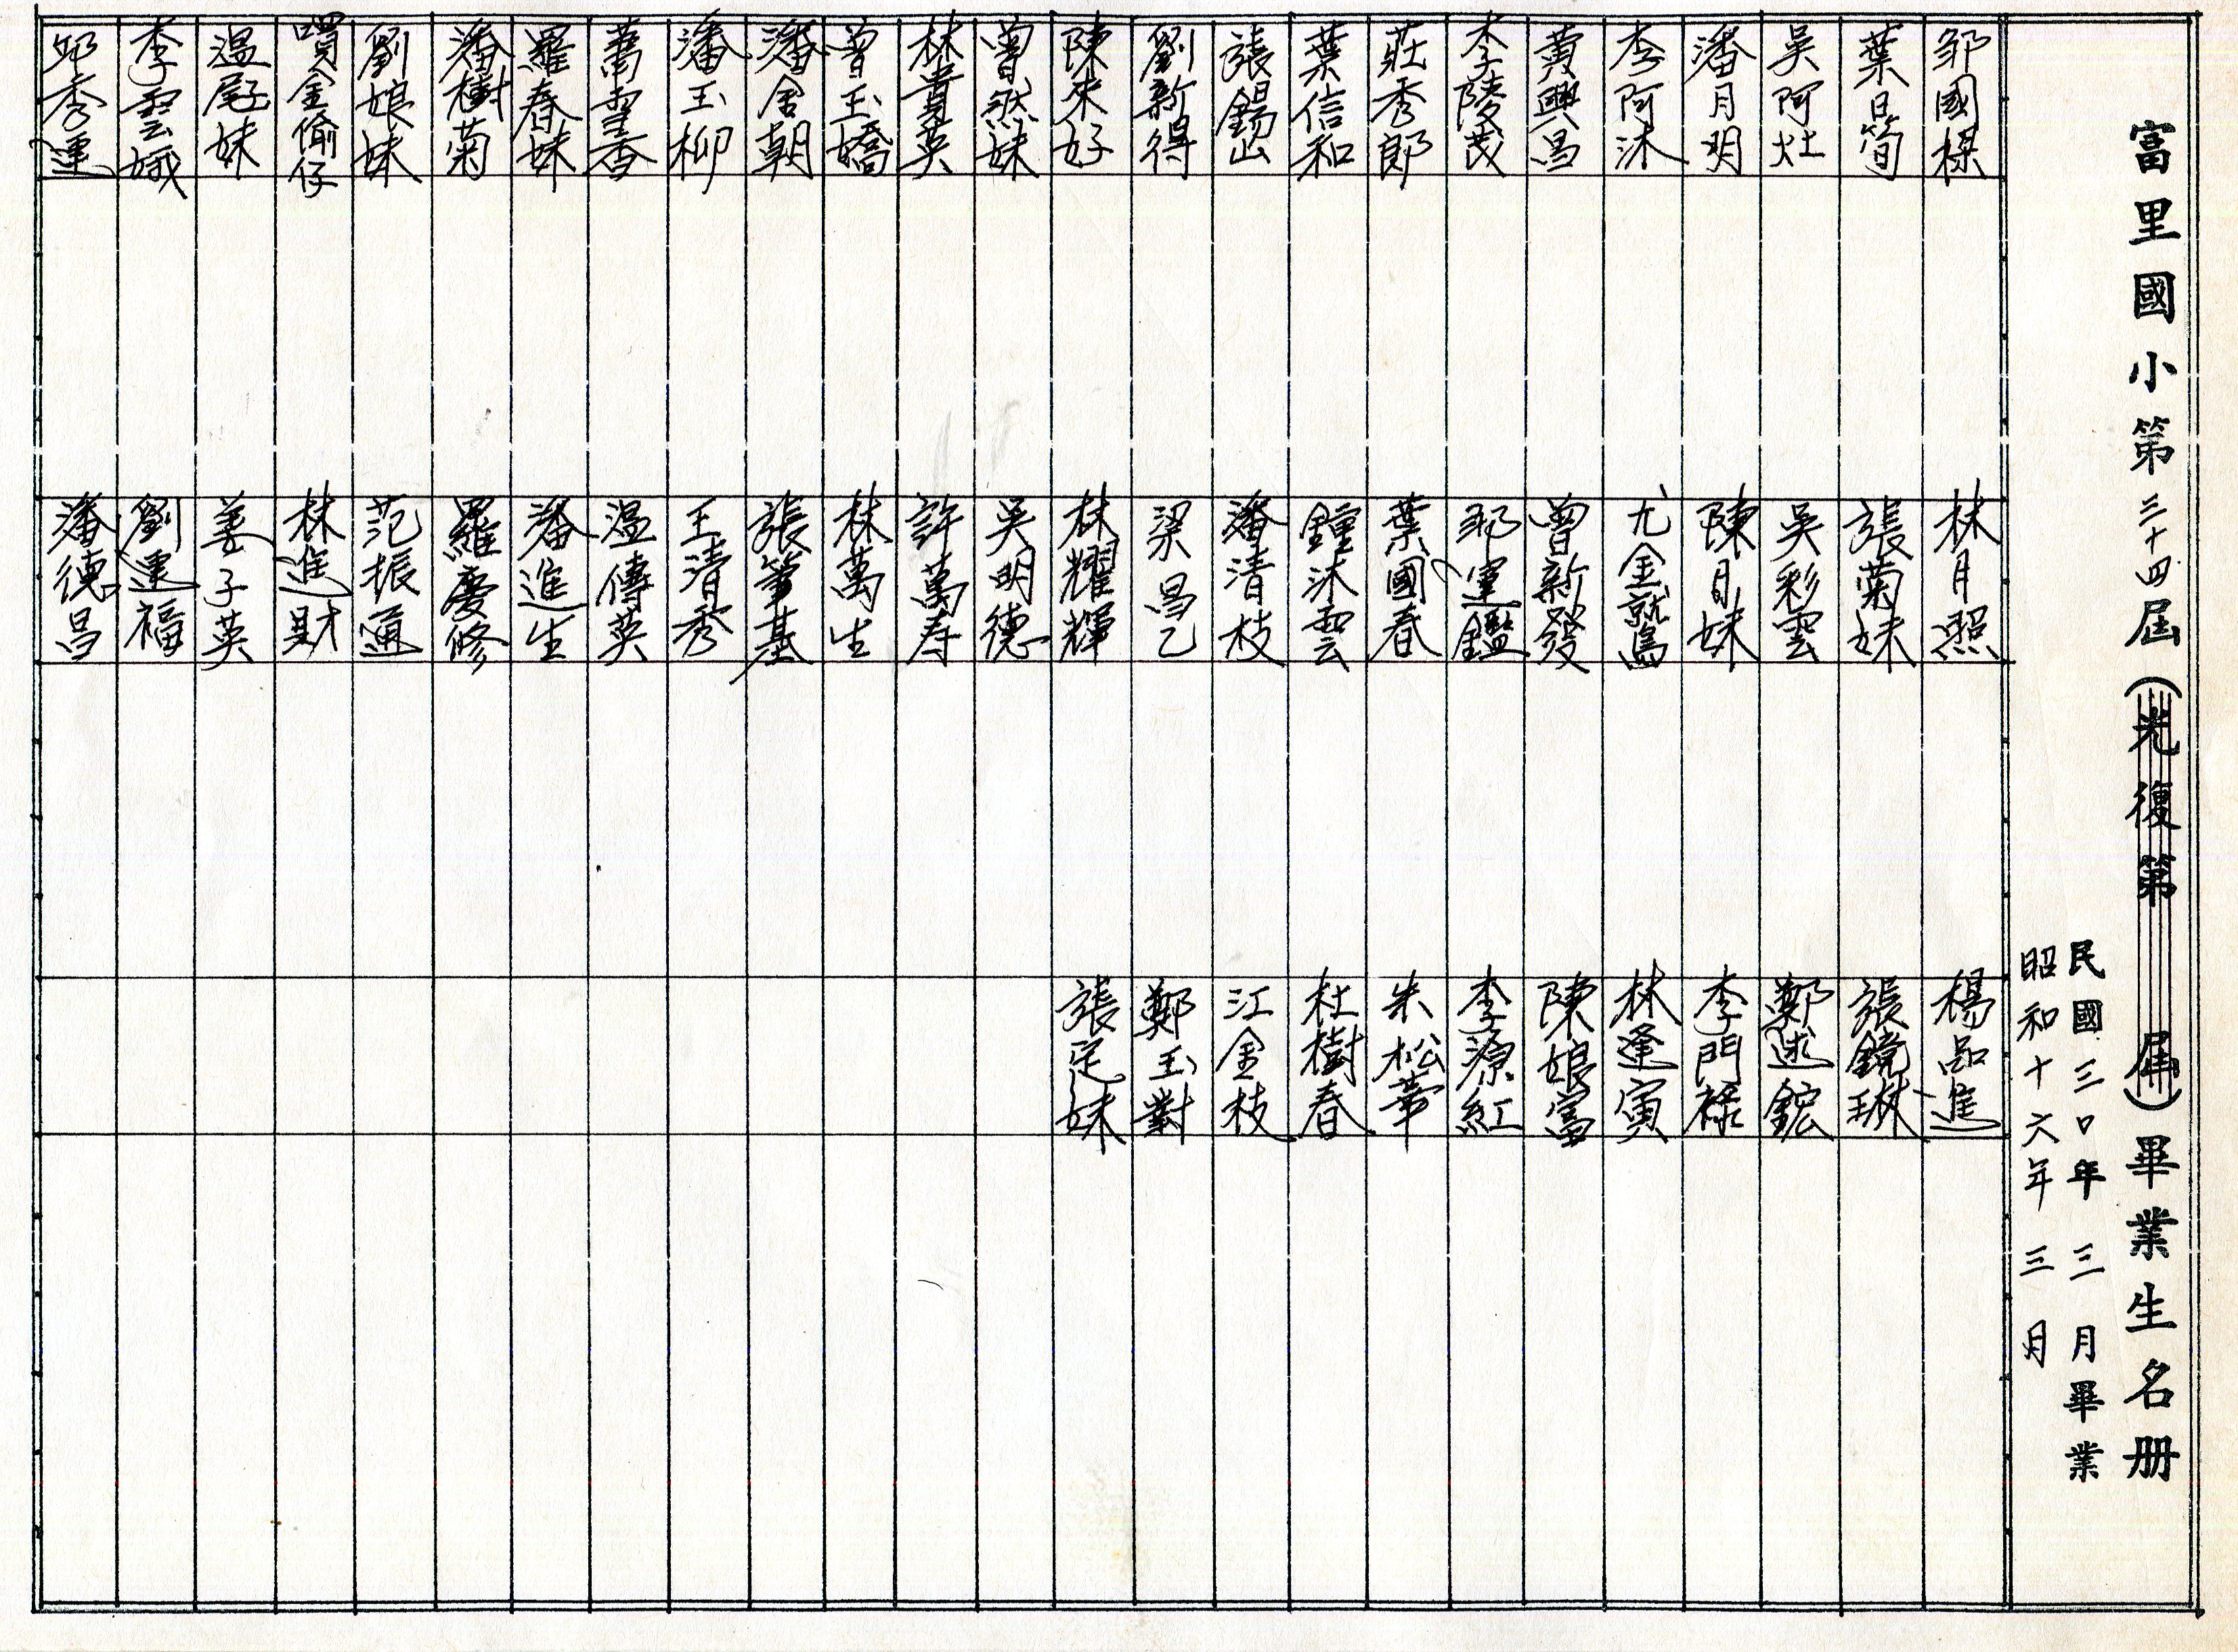 富里國小第三十四屆(光復第 屆)畢業生名册
民國三〇年三月畢業
昭和十六年三月
鄒國樑
葉日筒
吳阿灶
潘月明
李阿沐
黃興昌
李陵茂
莊秀郎
葉信和
張錫山
劉新得
陳來好
曾然妹
林貴英
曾玉嬌
潘舍朝
潘玉柳
萬雲香
羅春妹
潘樹菊
劉娘妹
金偷仔
温尾妹
李雲娥
邱秀運
林月照
張菊妹
吳彩雲
陳月妹
尤金鷲
曾新發
鄒運鑑
葉國春
鍾沐雲
潘清枝
梁昌乙
林耀輝
吳明德
許萬寿
林萬生
張肇基
王清秀
温傳英
潘進生
羅慶修
范振通
林進財
姜子英
劉運福
潘德昌
楊品進
張鏡琳
鄭述鋐
李門祿
林逢寅
陳娘富
李源紅
朱松華
杜樹春
江金枝
鄭玉對
張定妹